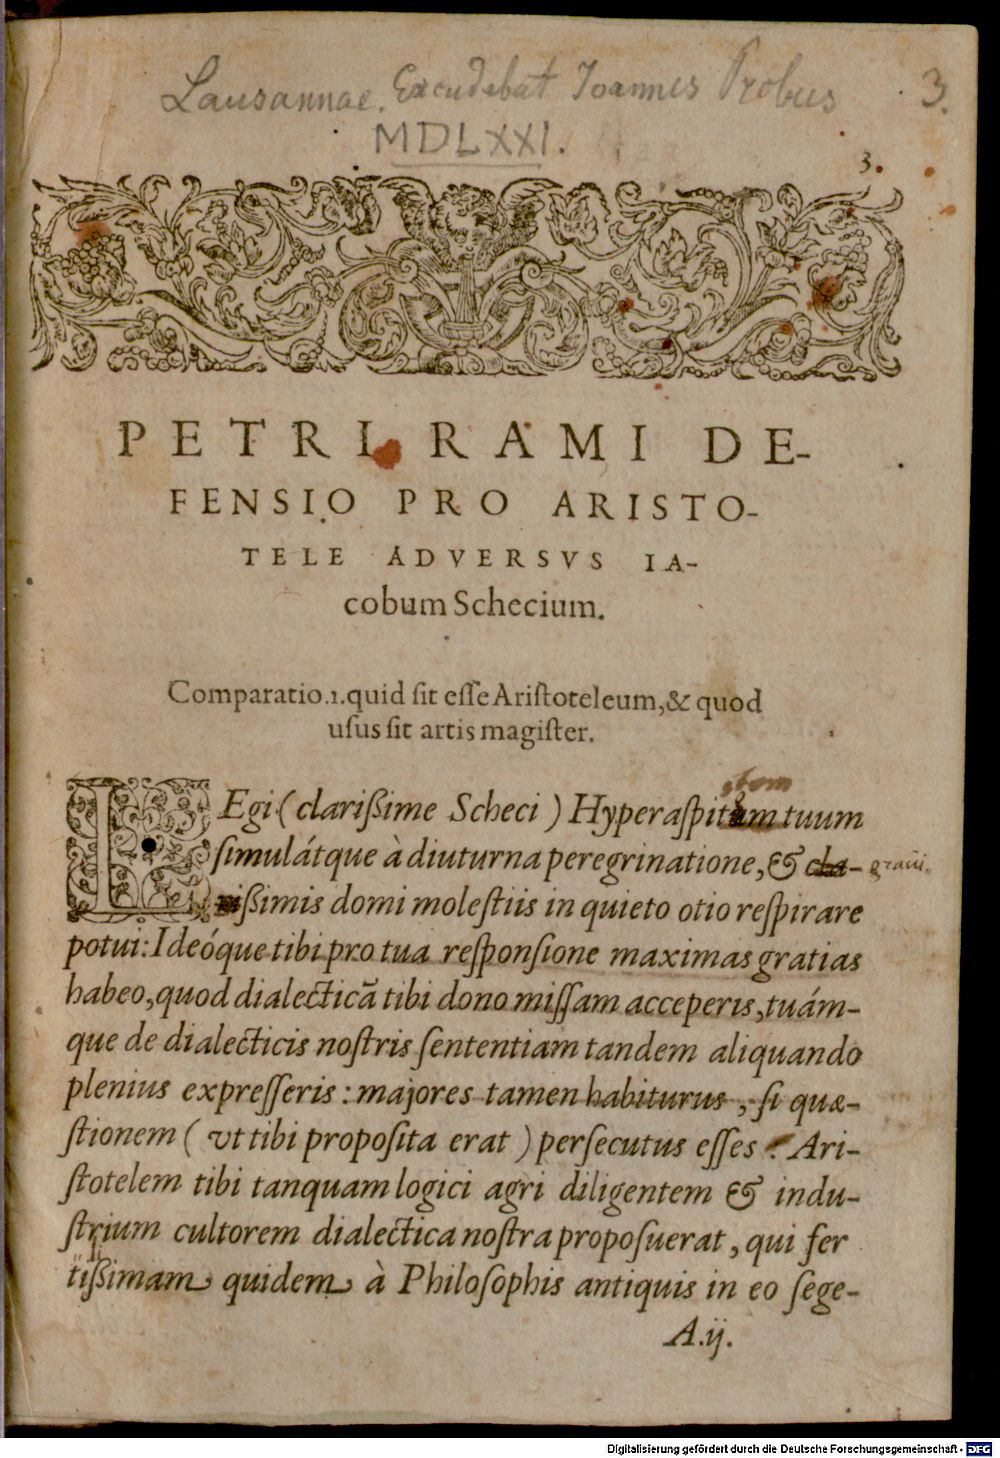 Lausannae. Excudebat Ioannes Probus
3.
MDLXXI.
3.
PETRI RAMI DE-
FENSIO PRO ARISTO-
TELE ADVERSVS IA-
cobum Schecium.
Comparatio.1.quid sit esse Aristoteleum,& quod
usus sit artis magister.
LEgi (clarißime Scheci) Hyperaspitam tuum
simulátque à diuturna peregrinatione, & cla-
graui.
rißimis domi molestiis in quieto otio respirare
potui: Ideóque tibi pro tua responsione maximas gratias
habeo, quod dialecticā tibi dono missam acceperis, tuám-
que de dialecticis nostris sententiam tandem aliquando
plenius expresseris: majores tamen habiturus, si quæ-
stionem (vt tibi proposita erat) persecutus esses. Ari-
stotelem tibi tanquam logici agri diligentem & indu-
strium cultorem dialectica nostra proposuerat, qui fer
tißimam quidem à Philosophis antiquis in eo sege-
A.ij.
Digitalisierung gefördert durch die Deutsche Forschungsgemeinschaft - DFG